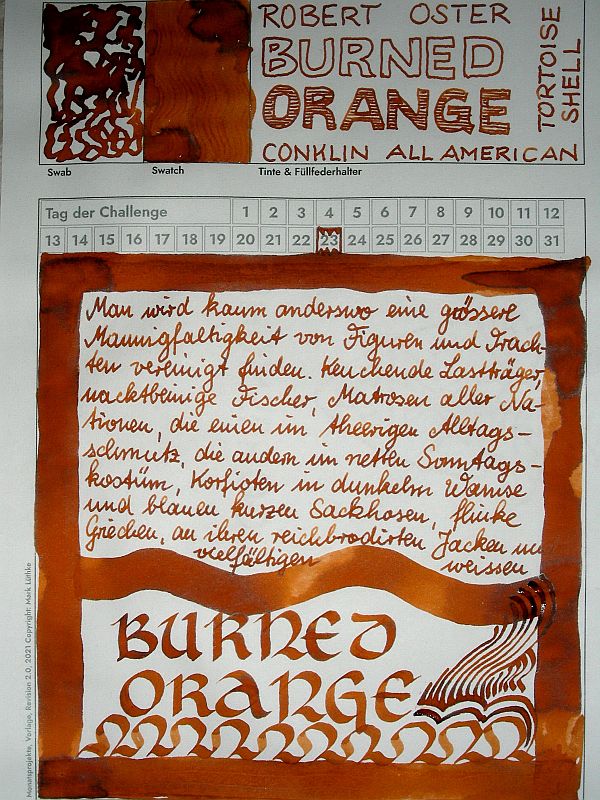 ROBERT OSTER
BURNED
ORANGE
TORTOISE
SHELL
CONKLIN ALL AMERICAN
Swab
Swatch
Tinte & Füllfederhalter
Tag der Challenge 1 2 3 4 5 6 7 8 9 10 11 12
13 14 15 16 17 18 19 20 21 22 23 24 25 26 27 28 29 30 31
Man wird kaum anderswo eine grössere
Mannigfaltigkeit von Figuren und Trach-
ten vereinigt finden. Keuchende Lastträger,
nacktbeinige Fischer, Matrosen aller Na-
tionen, die einen im theerigen Alltags-
schmutz, die andern im netten Sonntags-
kostüm, Korfioten in dunkelm Wamse
und blauen kurzen Sackhosen, flinke
Griechen, an ihren reichbrodirten Jacken und
vielfältigen weissen
BURNED
ORANGE
Monatsprojekte, Vorlage, Revision 2.0, 2021 Copyright: Mark Lüthke